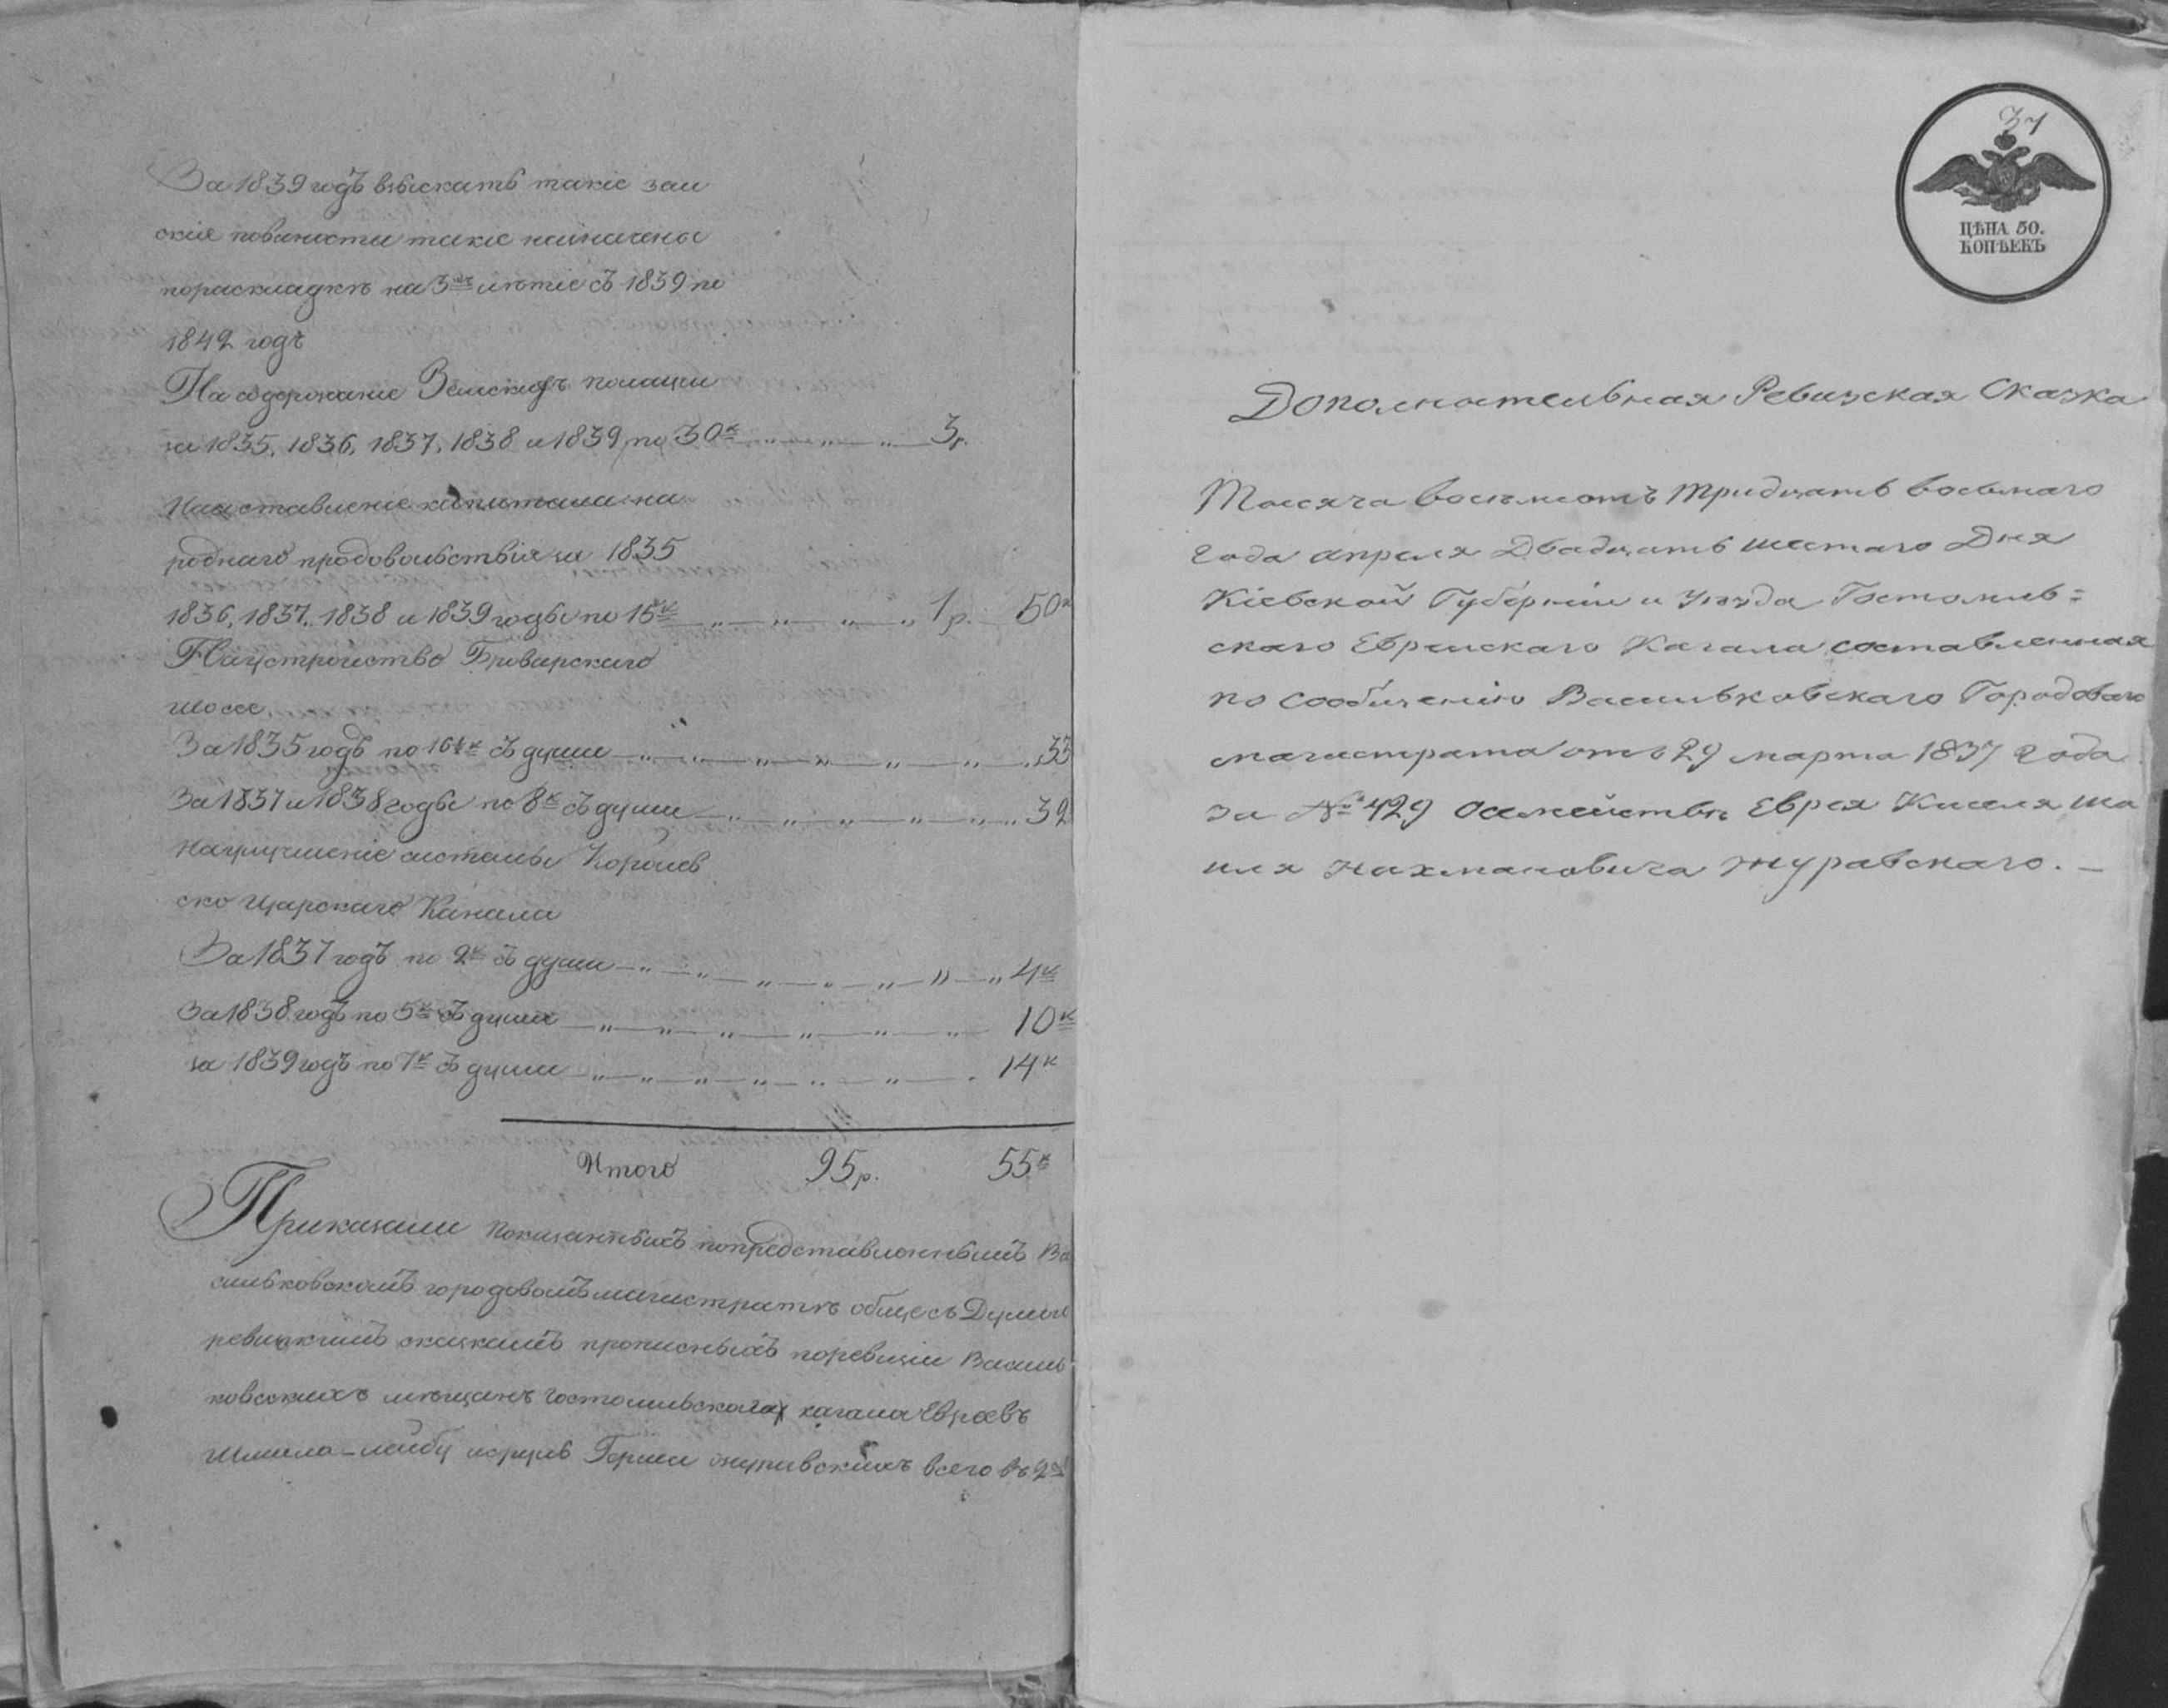 За 1839 годъ взыскать такіе зем
скіе повиности такіе назначены
пораскладкѣ на 3хъ лѣтіе съ 1839 по
1842 годъ
На содержаніе Земской полиціи
за 1835, 1836, 1837, 1838 и 1839 по 30к 3р.
На составленіе капитала на
роднаго продовольствія за 1835
1836, 1837, 1838 и 1839 годы по 15к 1р. 50к
На устройство Броварскаго
шоссе.
За 1835 годъ по 16½к съ души 33
За 1837 и 1838 годы по 8к съ души 32
На улучшеніе системы Королев
ско Царскаго Канала
За 1837 годъ по 2к съ души 4к
За 1838 годъ по 5к съ души 10к
за 1839 годъ по 7к съ души 14к
Итого 95р. 55к
Приказали показанныхъ попредставленнымъ Ва
сильковскимъ городовымъ магистратомъ обще съ Думою
ревизскимъ сказкамъ прописныхъ поревизіи Василь
ковскихъ мѣщанъ Гостомльскаго кагала Евреевъ
Шмила-Лейбу Герша Журавскихъ всего въ 2хъ
37
ЦѢНА 50.
КОПѢЕКЪ
Дополнительная Ревизская Сказка
Тысяча восемсотъ тридцать восьмаго
года апреля Двадцать шестаго Дня
Кіевской Губерніи и Уѣзда Гостомль=
скаго Еврейскаго Кагала составленная
по сообщенію Васильковскаго Городоваго
магистрата отъ 29 марта 1837 года
за № 429 осемействѣ Еврея Киселя Шм
иля Нахмановича Журавскаго. —